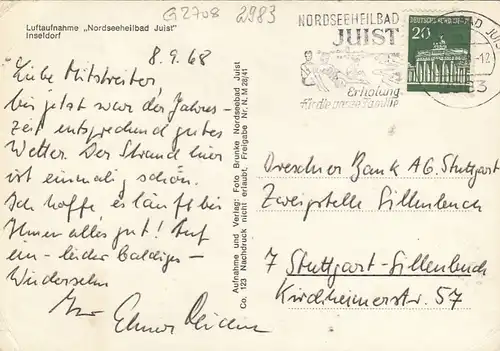 Luftaufnahme „Nordseeheilbad Juist"
Inseldorf
G2708 2983
8.9.68
Liebe Mitstreiter,
bis jetzt war der Jahres-
zeit entsprechend gutes
Wetter. Der Strand hier
ist einmalig schön.
Ich hoffe, es läuft bei
Ihnen alles gut! Auf
ein - leider baldiges -
Wiedersehn
Ihr Elmar
Aufnahme und Verlag: Foto Brunke Nordseebad Juist
Co. 123 Nachdruck nicht erlaubt, Freigabe Nr. N. M 28/41
NORDSEEHEILBAD
JUIST
Erholung
für die ganze Familie
DEUTSCHE BUNDESPOST
20
BAD JUIST
-12
Dresdner Bank AG. Stuttgart
Zweigstelle Sillenbuch
7 Stuttgart-Sillenbuch
Kirchheimerstr. 57